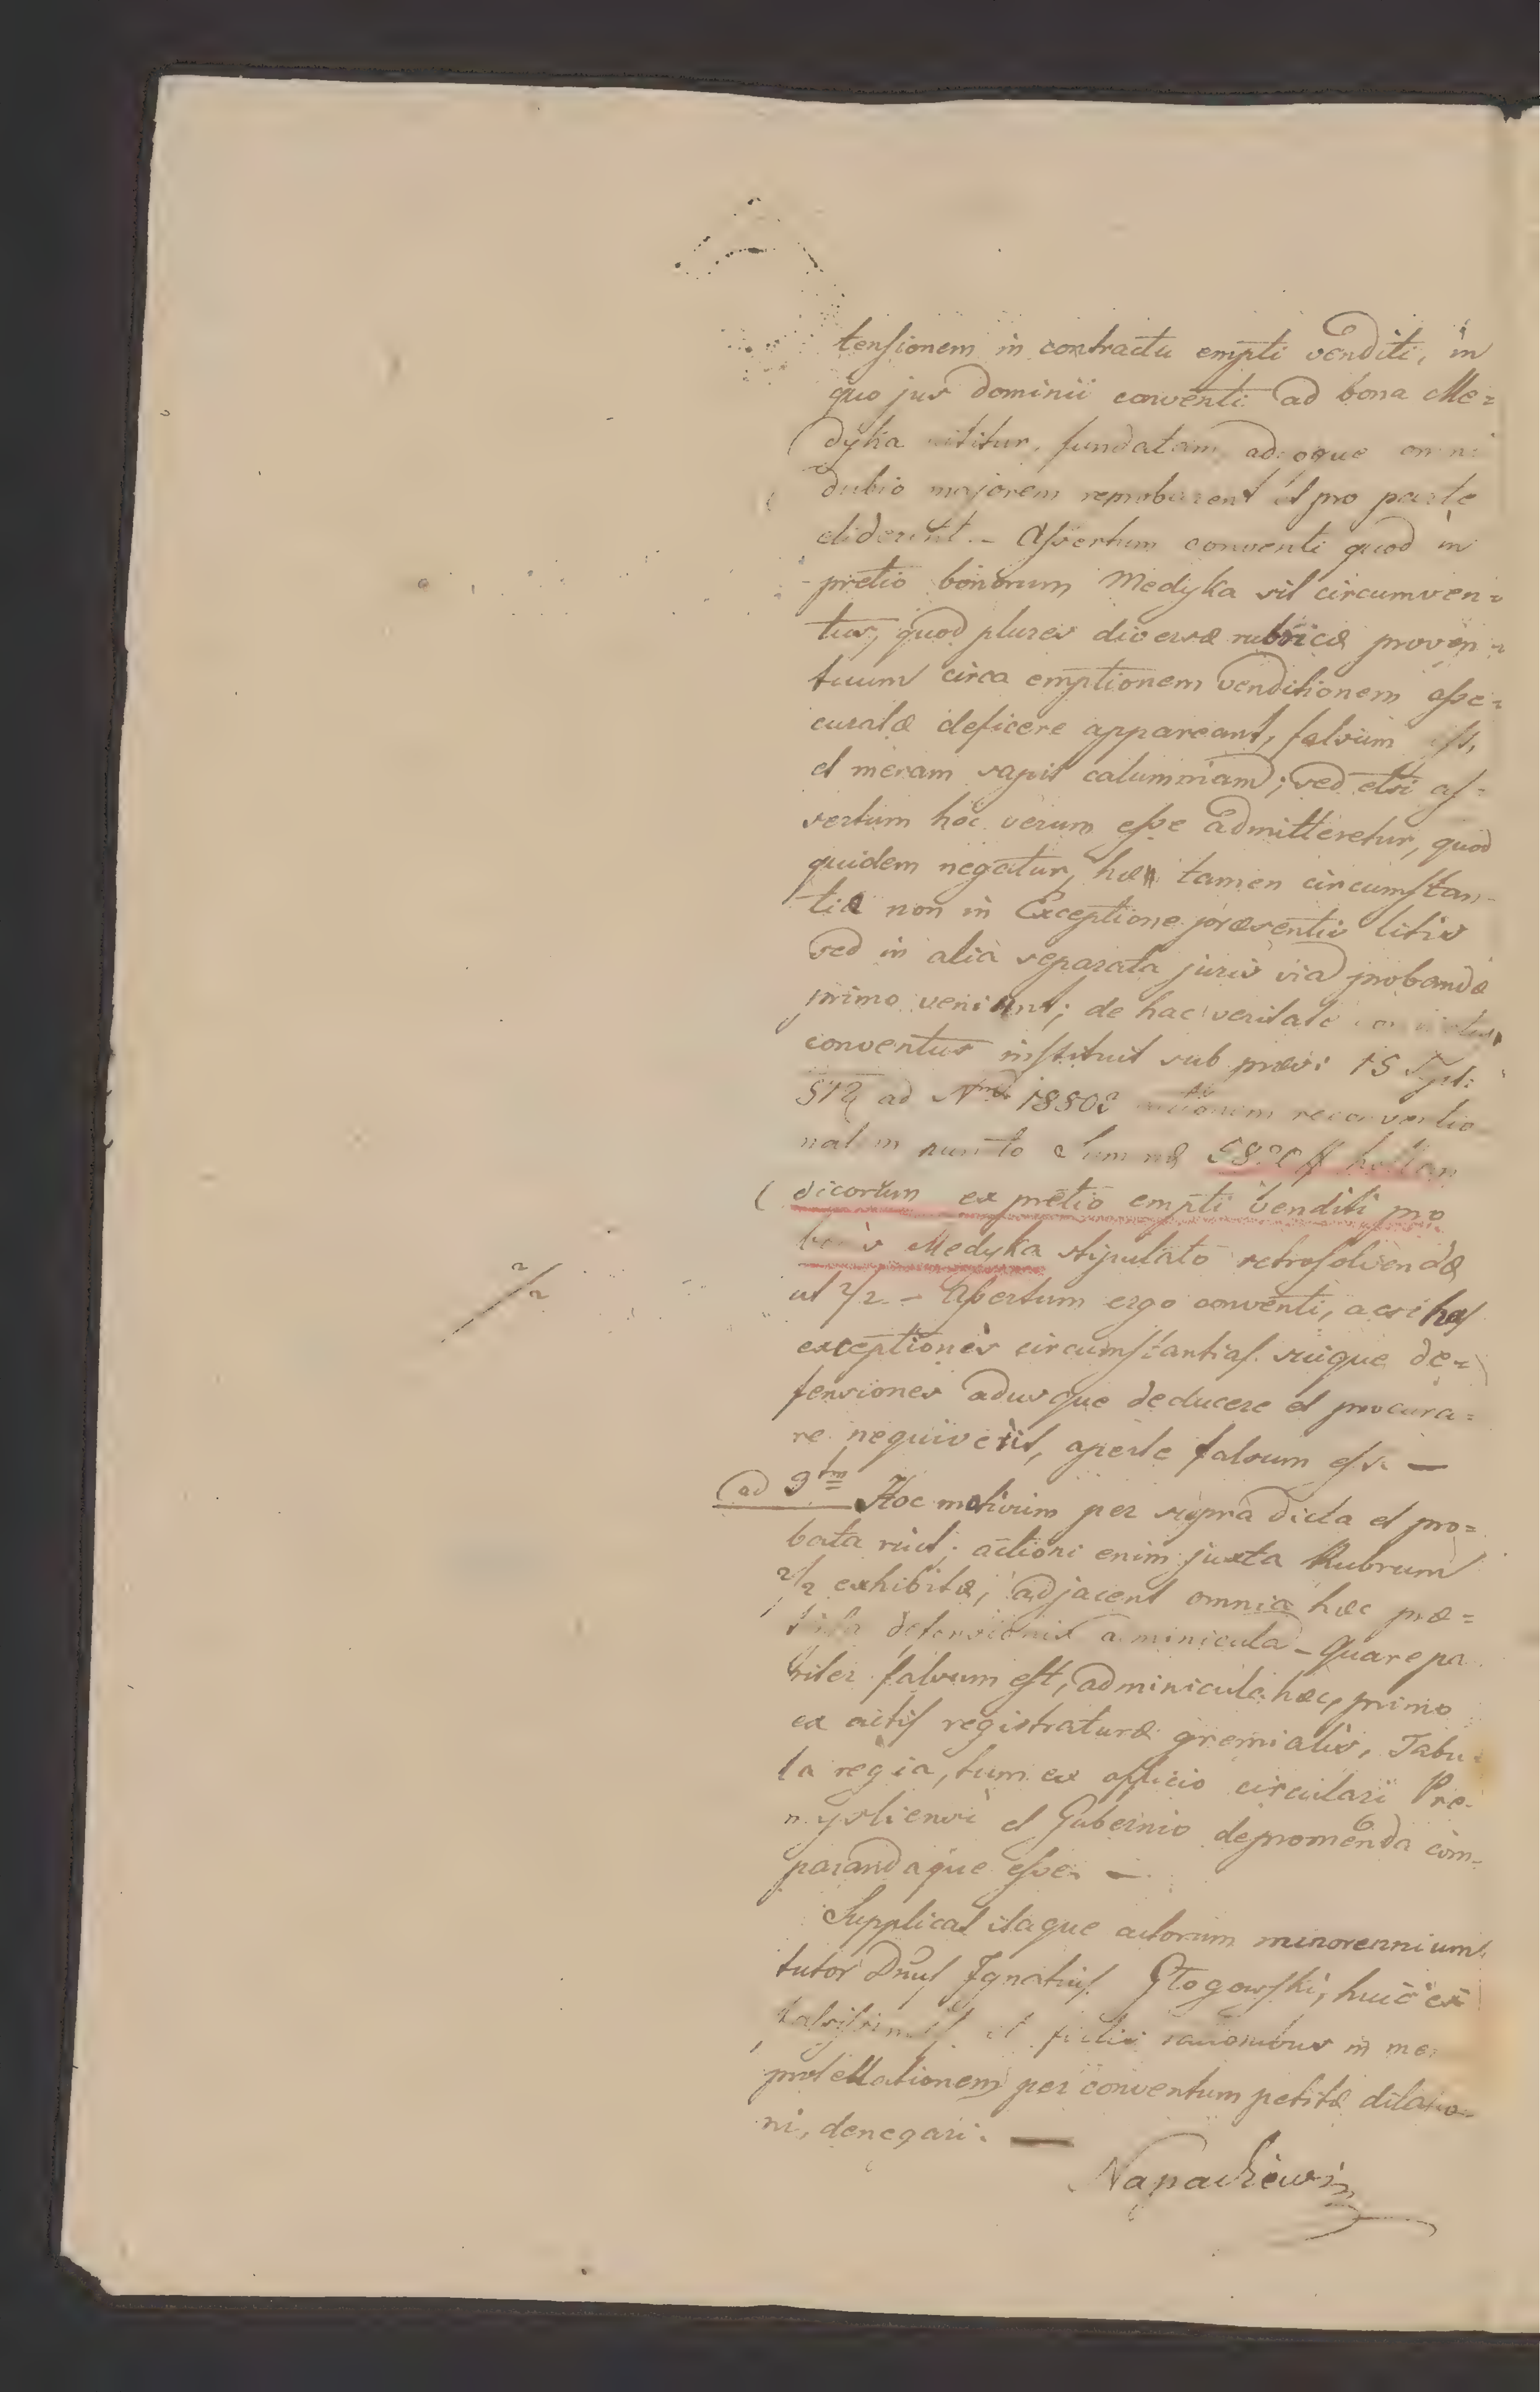 tensionem in contractu empti venditi, in
quo jus dominii conventi ad bona Me=
dyka nititur, fundatam adeoque omni
dubio majorem reprobarent et pro parte
eliderent. – Assertum conventi quod in
pretio bonorum Medyka sit circumven=
tus, quod plures diversæ rubricæ proven=
tuum circa emptionem venditionem asse=
curatæ deficere appareant, falsum est,
et meram sapit calumniam; sed etsi as=
sertum hoc verum esse admitteretur, quod
quidem negatur, hæ tamen circumstan-
tiæ non in Exceptione præsentis litis
sed in alia separata juris via probandæ
primo veniunt; de hac veritate
conventus instituit sub præs: 15
512 ad Nrum 18802 actionem reconventio
nalem puncto Summæ hollan
dicorum ex pretio empti venditi pro
bonis Medyka stipulato retrosolvendæ
ut 2/2 – Assertum ergo conventi, acsi has
exceptiones circumstantias suique de=
fensiones adusque deducere et procura=
re nequiverit, aperte falsum est. —
ad 3tm Hoc motivum per supra dicta et pro=
bata ruit; actioni enim juxta Rubrum
2/2 exhibitæ, adjacent omnia hæc præ=
defensionis adminicula – Quare pa
riter falsum est, adminicula hæc, primo
ex actis registraturæ gremialis, Tabu=
la regia, tum ex officio circulari Pre-
mysliensi et Gubernio depromenda com-
parandaque esse. —
Supplicat itaque actorum minorennium
tutor Dnus Ignatius Głogowski, huic ex
falsissimis et fictis rationibus in me:
protellationem per conventum petitæ dilatio-
ni, denegari. —
2/2